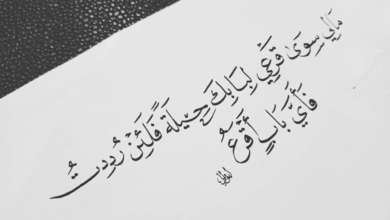 مَالِي سِوَى قَرْعِي لِبَابِكَ حِيلَةٌ فَلَئِنْ رُدِدتُ
فَأَيَّ بَابٍ أَقْرَعُ